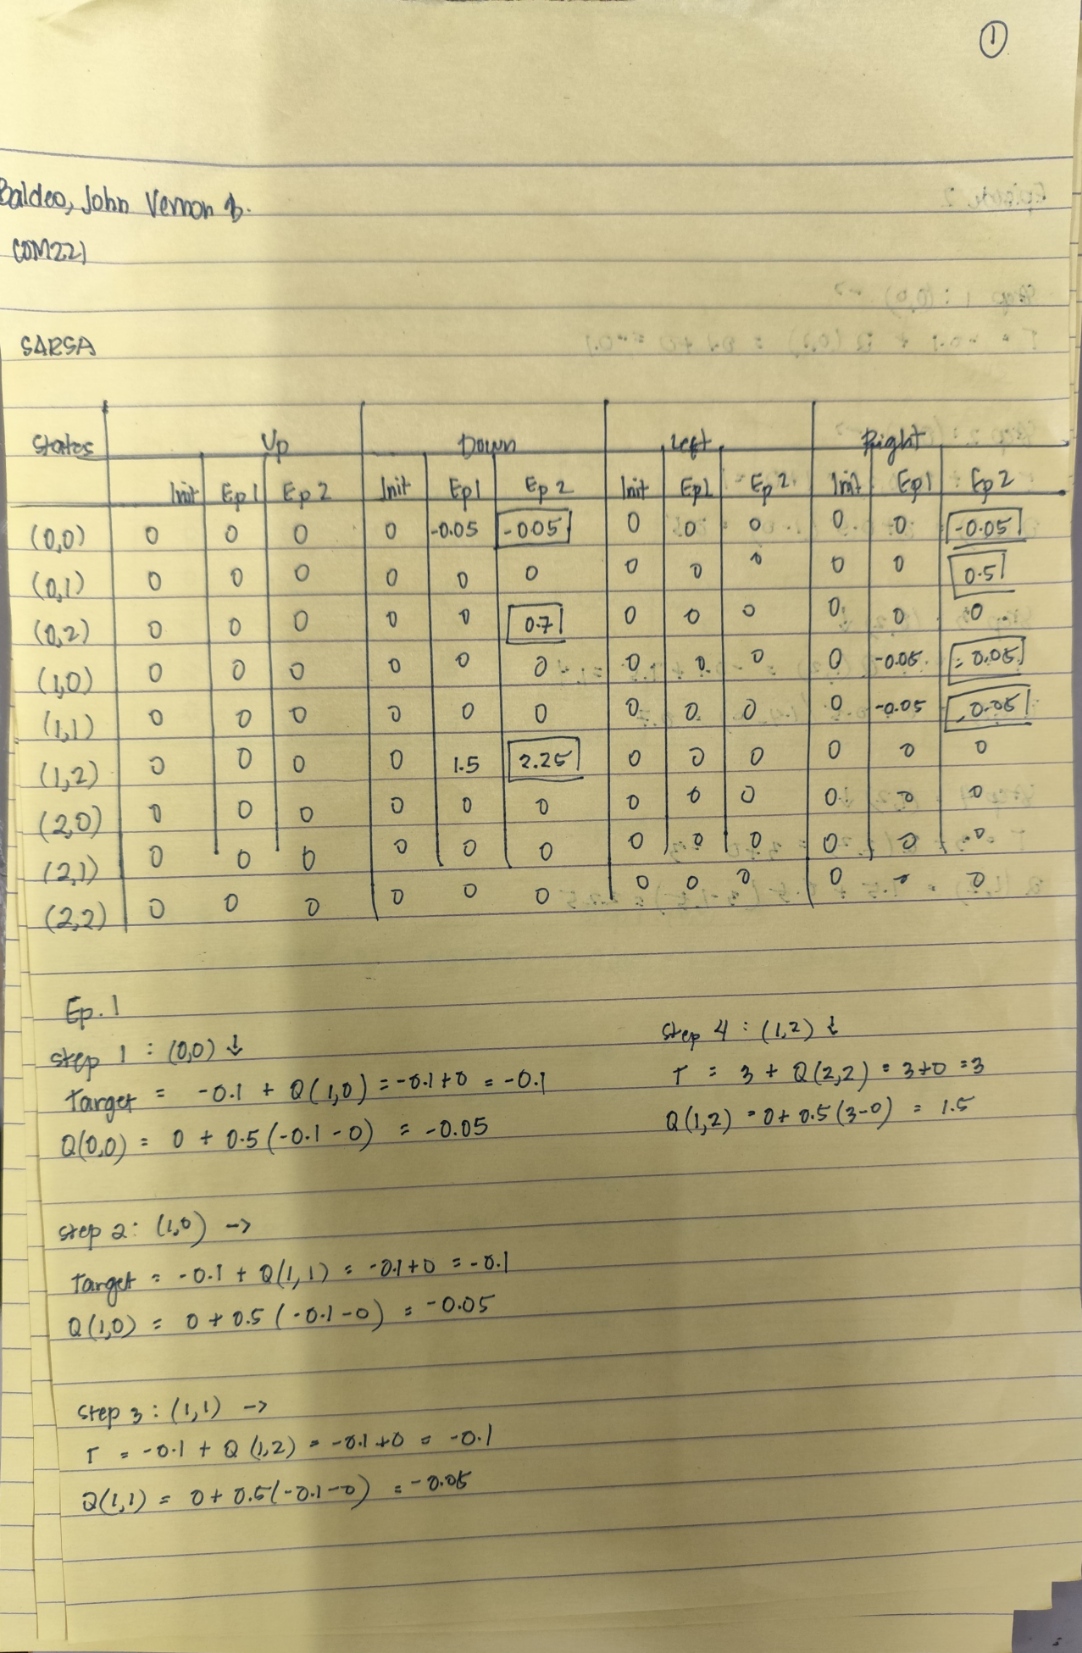 ①
Baldeo, John Vernon B.
COM221
SARSA
States Up Down Left Right
Init Ep1 Ep2 Init Ep1 Ep2 Init Ep1 Ep2 Init Ep1 Ep2
(0,0) 0 0 0 0 -0.05 -0.05 0 0 0 0 0 -0.05
(0,1) 0 0 0 0 0 0 0 0 0 0 0 0.5
(0,2) 0 0 0 0 0 0.7 0 0 0 0 0 0
(1,0) 0 0 0 0 0 0 0 0 0 0 -0.05 -0.05
(1,1) 0 0 0 0 0 0 0 0 0 0 -0.05 -0.05
(1,2) 0 0 0 0 1.5 2.25 0 0 0 0 0 0
(2,0) 0 0 0 0 0 0 0 0 0 0 0 0
(2,1) 0 0 0 0 0 0 0 0 0 0 0 0
(2,2) 0 0 0 0 0 0 0 0 0 0 0 0
Ep. 1
Step 1 : (0,0) ↓
Target = -0.1 + Q(1,0) = -0.1+0 = -0.1
Q(0,0) = 0 + 0.5(-0.1-0) = -0.05
Step 2: (1,0) ->
Target = -0.1 + Q(1,1) = -0.1+0 = -0.1
Q(1,0) = 0 + 0.5 (-0.1-0) = -0.05
Step 3 : (1,1) ->
T = -0.1 + Q (1,2) = -0.1+0 = -0.1
Q(1,1) = 0+ 0.5(-0.1-0) = -0.05
Step 4 : (1,2) ↓
T = 3 + Q(2,2) = 3+0 =3
Q(1,2) = 0+ 0.5(3-0) = 1.5